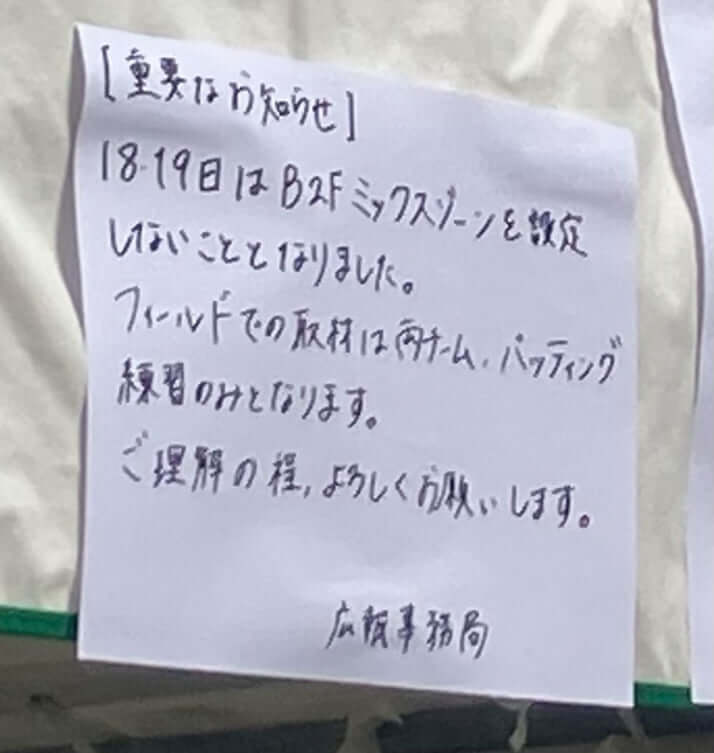 [重要なお知らせ]
18.19日はB2Fミックスゾーンを設定
しないこととなりました。
フィールドでの取材は両チーム、バッティング
練習のみとなります。
ご理解の程、よろしくお願いします。
広報事務局